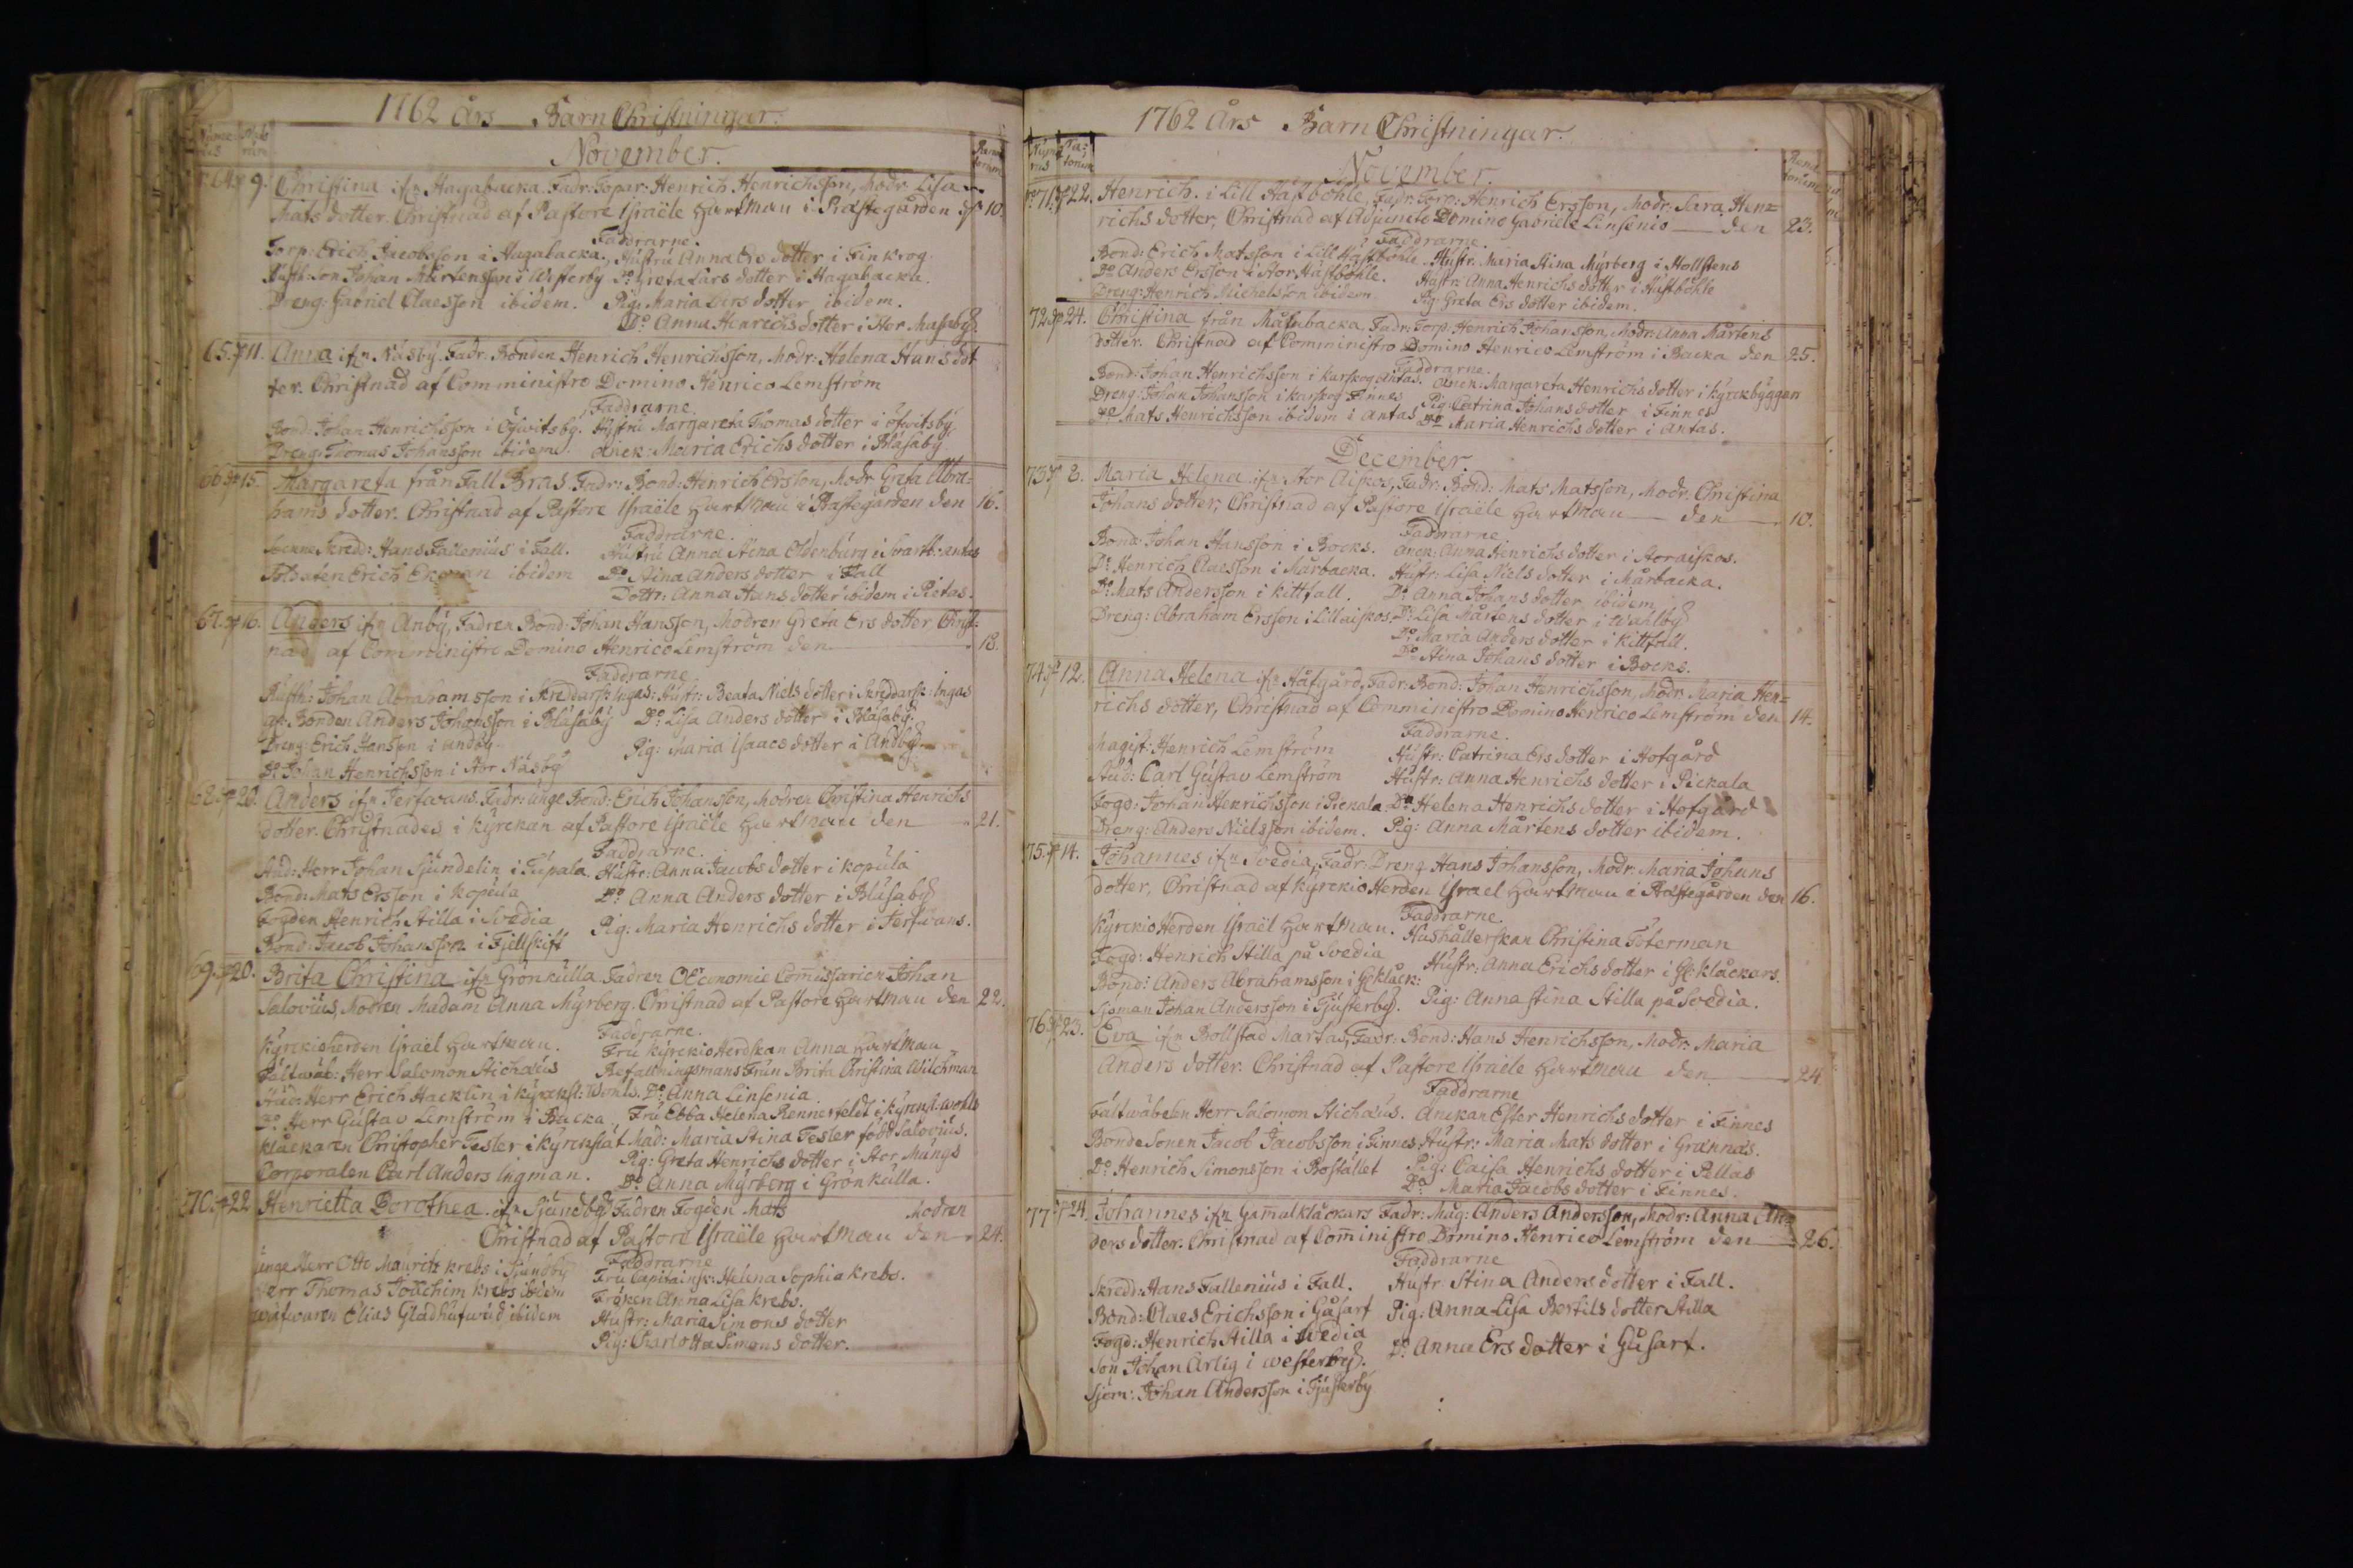 1762 års Barn Christningar.
November.
64. 9. Christina ifrn Hagabacka. Fadr: Torpr: Henrich Henrichsson, Modr Lisa
Mats dotter. Christnad af Pastore Israële Hartman i Prästegården d. 10.
Faddrarne.
Torp: Erich Jacobsson i Hagabacka. Hustru Anna Ers dotter i Finkrog.
Rusth: son Johan Mårtensson i Westerby Do Greta Lars dotter i Hagabacka.
Dreng: Gabriel Claesson ibidem. Pig: Maria Lars dotter ibidem.
Do Anna Henrichs dotter i Stor
65. 11. Anna ifrn Näsby. Fadr: Bonden Henrich Henrichsson, Modr: Helena Hans dot
ter. Christnad af Comministro Domino Henrico Lemström
Faddrarne.
Bond: Johan Henrichsson i Öfwitsby. Hustru Margareta Thomas dotter i öfwitsby
Dreng: Thomas Johansson ibidem. Anck: Maria Erichs dotter i Blåsaby
66. 15. Margareta från Fall Bras. Fadr: Bond: Henrich Ersson, Modr Greta Abra-
hams dotter. Christnad af Pastore Israële Hartman i Prästegården den 16.
Faddrarne.
Sockne Skredd: Hans Fallenius i Fall. Hustru Anna Stina Oldenburg i
Soldaten Erich Ekman ibidem Do Stina Anders dotter i Fall
Dottr: Anna Hans dotter ibidem i Pietas.
67. 16. Anders ifrn Anby, Fadren Bond: Johan Hansson, Modren Greta Ers dotter Christ-
nad af Comministro Domino Henrico Lemström den 18.
Faddrarne
Rusth: Johan Abrahamsson i Skreddarsk: Ingas: Hustr: Beata Niels dotter i Skreddarsk: Ingas
Bonden Anders Johansson i Blåsaby Do Lisa Anders dotter i Blåsaby.
Dreng: Erich Hansson i Andby Pig: Maria Isaacs dotter i Andby
Do Johan Henrichsson i Stor Näsby
68. 20. Anders ifrn Jerfwans. Fadr: unge Bond: Erich Johansson, Modren Christina Henrichs
dotter. Christnades i kyrckan af Pastore Israële Hartman den 21.
Faddrarne.
Stud: Herr Johan Sjundelin i Tupala. Hustr: Anna Jacobs dotter i kopula
Bond: Mats Ersson i kopula Do Anna Anders dotter i Blåsaby
Fogden Henrich Stilla i Svedia Pig: Maria Henrichs dotter i Jerfwans.
Bond: Jacob Johansson i Fjellskift
69. 20. Brita Christina ifrn Grönkulla. Fadren OEconomie Comissarien Johan
Salovius, Modren Madam Anna Myrberg. Christnad af Pastore Hartman den 22.
Faddrarne.
Kyrckioherden Israël Hartman. Fru kyrckioherdskan Anna Hartman
Fältwäb: Herr Salomon Stichæus Befallningsmans Frun Brita Christina Wilchman
Stud: Herr Erich Hacklin i kyrcksl: Wohls. Do Anna Linsenia.
Do Herr Gustav Lemström i Backa. Fru Ebba Helena Rennerfeldt i kyrcksl. wohls
klåckaren Christopher Tesler i kyrckslät Mad: Maria Stina Tesler född Salovius.
Corporalen Carl Anders Ingman. Pig: Greta Henrichs dotter i Stor Mängs
Do Anna Myrberg i Grönkulla.
70. 22 Henrietta Dorothea. ifrn Sjundby Fadren Fogden Mats Modren
Christnad af Pastore Israële Hartman den 24.
Faddrarne
unge Herr Otto Mauritz krebs i Sjundby Fru Capitainsk: Helena Sophia krebs.
Herr Thomas Joachim krebs ibidem Fröken Anna Lisa krebs.
Elias Gladhufwud ibidem Hustr: Maria Simons dotter
Pig: Charlotta Simons dotter.
1762 års Barn Christningar.
November.
71. 22. Henrich. i Lill Hästböhle, Fadr: Torp: Henrich Ersson, Modr: Sara Hen=
richs dotter, Christnad af Adjuncto Domino Gabriele Linsenio den 23.
Faddrarne.
Bond: Erich Matsson i Lill Hästböhle Hustr: Maria Stina Myrberg i Mollstens
Do Anders Ersson i Stor Hästböhle. Hustr: Anna Henrichs dotter i Hästböhle
Dreng: Henrich Michelsson ibidem Pig: Greta Ers dotter ibidem.
72. 24. Christina från Målabacka, Fadr: Torp: Henrich Johansson, Modr: Anna Mårtens
dotter. Christnad af Comministro Domino Henrico Lemström i Backa den 25.
Faddrarne.
Bond: Johan Henrichsson i karskog Antas. Anck: Margareta Henrichs dotter i kyrckbyggen
Dreng: Johan Johansson i karskog Finnes Pig: Catrina Johans dotter i Finnes
Do Mats Henrichsson ibidem i Antas Do Maria Henrichs dotter i Antas.
December
73. 8. Maria Helena ifrn Stor Aiskos, Fadr: Bond: Mats Matsson, Modr: Christina
Johans dotter, Christnad af Pastore Israële Hartman den 10.
Faddrarne
Bond: Johan Hansson i Bocks. Anck: Anna Henrichs dotter i Storaiskos.
Do Henrich Claesson i Mårbacka. Hustr: Lisa Niels dotter i Mårbacka.
Do Mats Andersson i kittfall. Do Anna Johans dotter ibidem
Dreng: Abraham Ersson i Lillaiskos. Do Lisa Mårtens dotter i Wahlby
Do Maria Anders dotter i kittfall.
Do Stina Johans dotter i Bocks.
74. 12. Anna Helena ifrn Håfgård, Fadr: Bond: Johan Henrichsson, Modr Maria Hen=
richs dotter, Christnad af Comministro Domino Henrico Lemström den 14.
Faddrarne.
Magist: Henrich Lemström Hustr: Catrina Ers dotter i Hofgård
Stud: Carl Gustav Lemström Hustr: Anna Henrichs dotter i Pickala
Fogd: Johan Henrichsson i Pickala Do Helena Henrichs dotter i Hofgård
Dreng: Anders Nielsson ibidem. Pig: Anna Mårtens dotter ibidem.
75. 14. Johannes ifrn Svedia, Fadr: Dreng Hans Johansson, Modr: Maria Johans
dotter, Christnad af kyrckio Herden Israel Hartman i Prästegården den 16.
Faddrarne.
Kyrckio Herden Israël Hartman. Hushållerskan Christina Töterman
Fogd: Henrich Stilla på Svedia Hustr: Anna Erichs dotter i Gl: klåckars.
Bond: Anders Abrahamsson i Gl klåck:
Sjöman Johan Andersson i Tjusterby. Pig: Anna Stina Stilla på Svedia.
76. 23. Eva ifrn Bollstad Martas, Fadr: Bond: Hans Henrichsson, Modr: Maria
Anders dotter. Christnad af Pastore Israële Hartman den 24
Faddrarne
Fältwäbelen Herr Salomon Stichæus. Anckan Ester Henrichs dotter i Finnes
Bonde Sonen Jacob Jacobsson i Finnes Hustr: Maria Mats dotter i Grannas.
Do Henrich Simonsson i Bostället Pig: Caisa Henrichs dotter i Pellas
Do Maria Jacobs dotter i Finnes.
77 24. Johannes ifrn Gam̄alklåckars Fadr: Mag: Anders Andersson, Modr: Anna An=
ders dotter. Christnad af Com̄inistro Domino Henrico Lemström den 26.
Faddrarne
Skredd: Hans Fallenius i Fall. Hustr Stina Anders dotter i Fall.
Bond: Claes Erichsson i Gåsarf Pig: Anna Lisa Bertils dotter Stilla
Fogd: Henrich Stilla i Svedia Do Anna Ers dotter i Gåsarf.
Son Johan Arlig i westerby.
Sjöm: Johan Andersson i Tjusterby